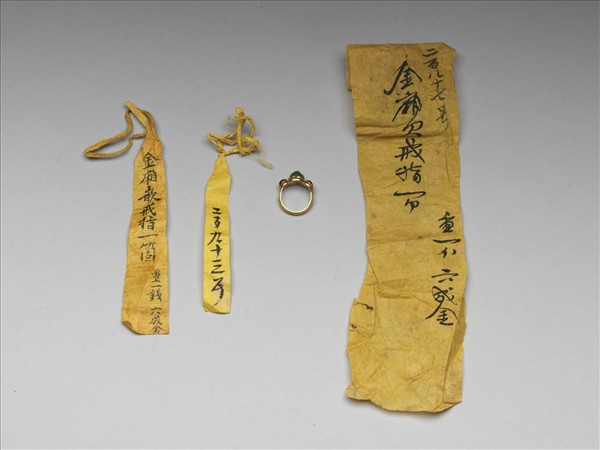 二百八十七号
金廂戒指一
重一 六成金
二百九十三号
金廂嵌戒指一個
重一錢 六成金